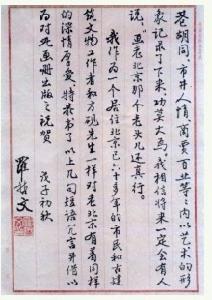 巷胡同、市井人情商贾百业等之内以艺术的形
象记录了下来，功莫大焉，我相信将来一定会有人
说，“画老北京那个老头儿还真行。
我作为一个居住北京已六十多年的市民和古建
筑文物工作者和方砚先生一样对老北京有着同样
的深情厚爱，特书了以上几句短语冗言并借以
而对此画册出版之祝贺
戊子初秋
罗哲文